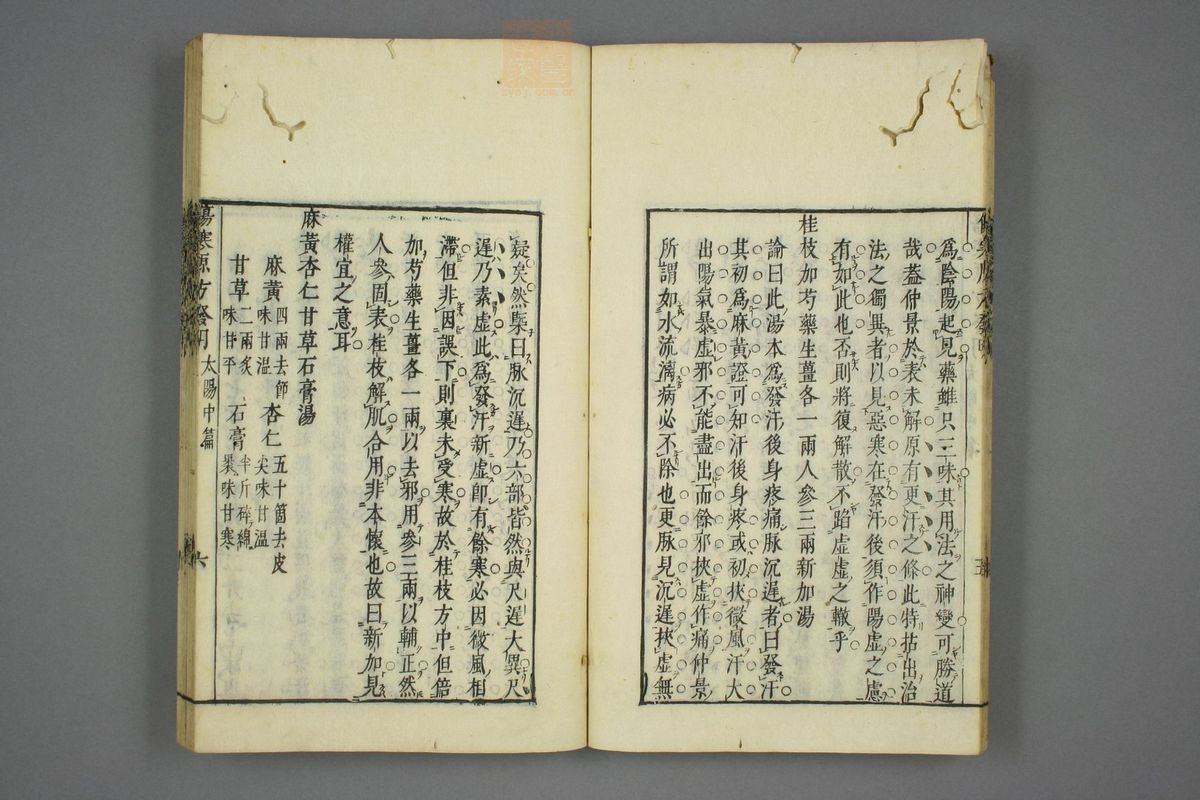 為陰陽起見藥雖只三味其用法之神變可勝道
哉蓋仲景於表未解原有更汗之條此特拈出治
法之獨異者以見惡寒在發汗後須作陽虛之慮
有如此也否則將復解散不蹈虛虛之轍乎
桂枝加芍藥生薑各一兩人參三兩新加湯
論曰此湯本為發汗後身疼痛脉沉遲者曰發汗
其初為麻黃證可知汗後身疼或初挾微風汗大
出陽氣暴虛邪不能盡出而餘邪挾虛作痛仲景
所謂如水流漓病必不除也更脉見沉遲挾虛無
五
疑矣然槩曰脉沉遲乃六部皆然與尺遲大異尺
遲乃素虛此為發汗新虛卽有餘寒必因微風相
滯但非因誤下則裏未受寒故於桂枝方中但倍
加芍藥生薑各一兩以去邪用參三兩以輔正然
人參固表桂枝解肌合用非本懷也故曰新加見
權宜之意耳
麻黃杏仁甘草石膏湯
麻黃四兩去節味甘溫 杏仁五十箇去皮尖味甘溫
甘草二兩炙味甘平 石膏半斤碎綿裹味甘寒
傷寒源方發明 太陽中篇 六
zysj.com.cn